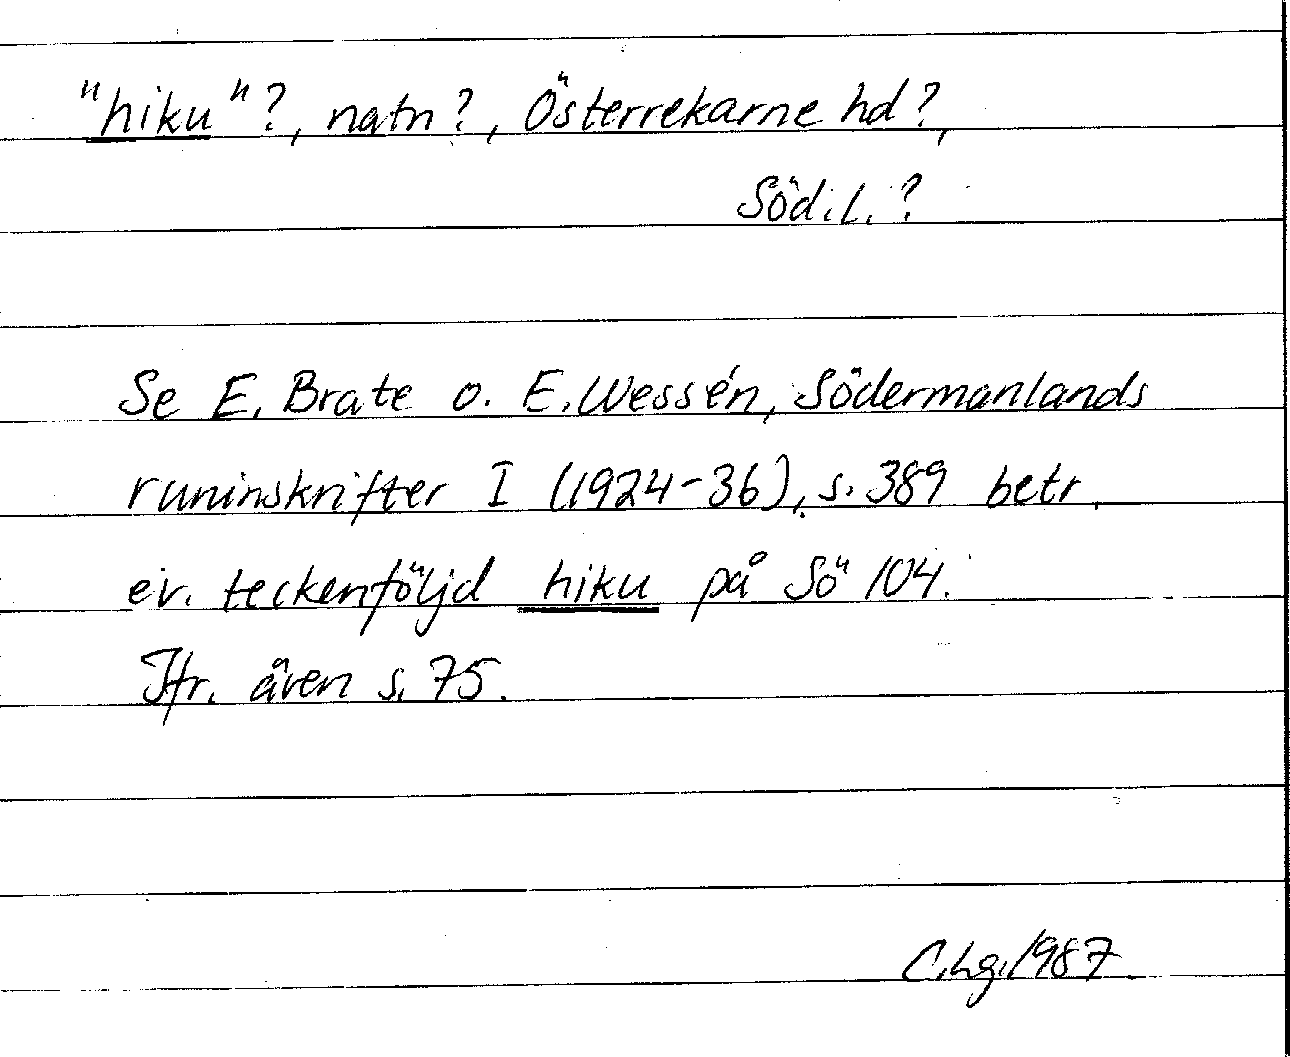 "hiku"?, natn?, Österrekarne hd?,
Söd.l.?
Se E. Brate o. E. Wessén, Södermanlands
runinskrifter I (1924-36), s. 389 betr.
ev. teckenföljd hiku på Sö 104.
Jfr. även s. 75.
C.Lg. 1987.